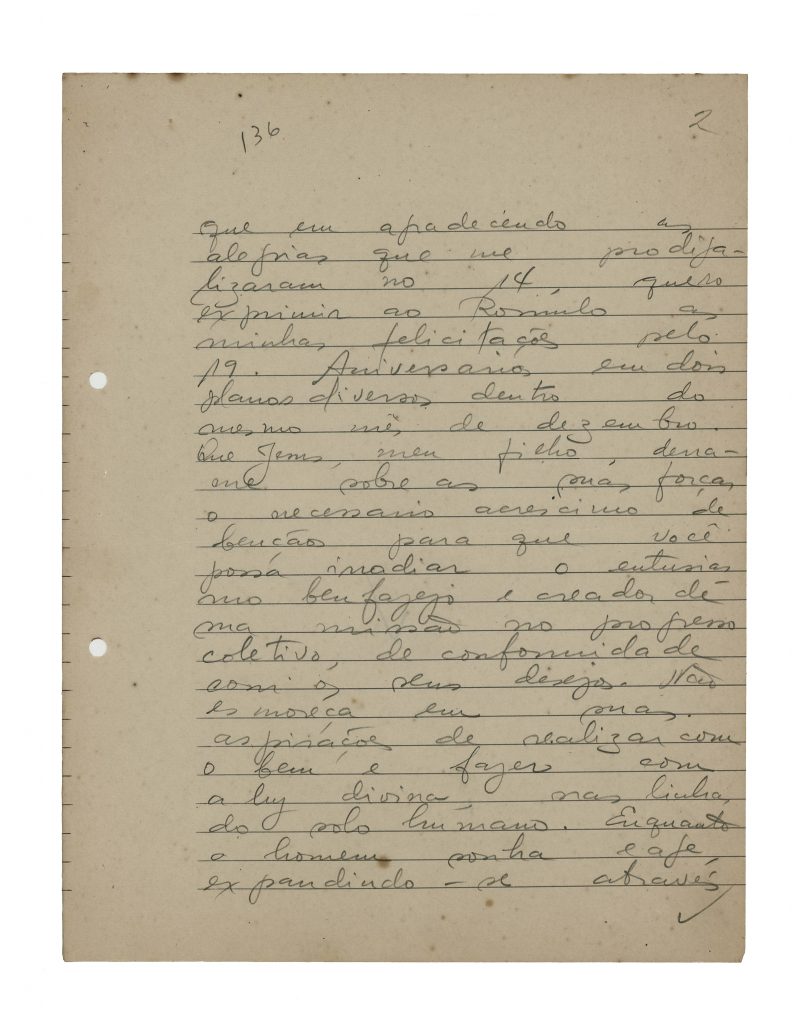 136
2
que em agradecendo as
alegrias que me prodiga-
lizaram no 14, quero
exprimir ao Romulo as
minhas felicitações pelo
19. Aniversarios em dois
planos diversos dentro do
mesmo mês de dezembro.
Que Jesus, meu filho, derra-
me sobre as suas forças
o necessario acrescimo de
bençãos para que você
possa irradiar o entusias
mo benfazejo e creador de
sua missão no progresso
coletivo, de conformidade
com os seus desejos. Não
esmoreça em suas
aspirações de realizar com
o bem e fazer com
a luz divina, nas linhas
do solo humano. Enquanto
o homem sonha e age,
expandindo-se através